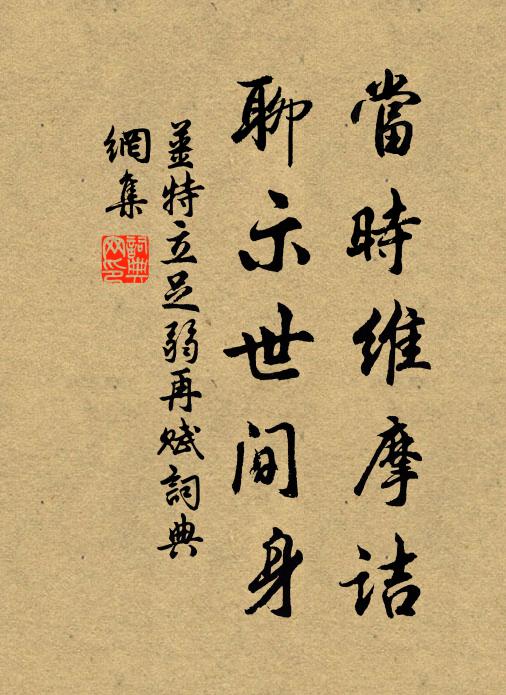 當時維摩詰
聊示世間身
姜特立足弱再賦詞典
網集
詞典網印